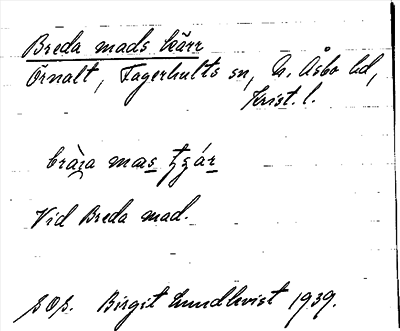 Breda mads kärr
Örnalt, Fagerhults sn, N. Åsbo hd,
Krist. l.
Vid Breda mad.
SOS. Birgit Lundkvist 1939.